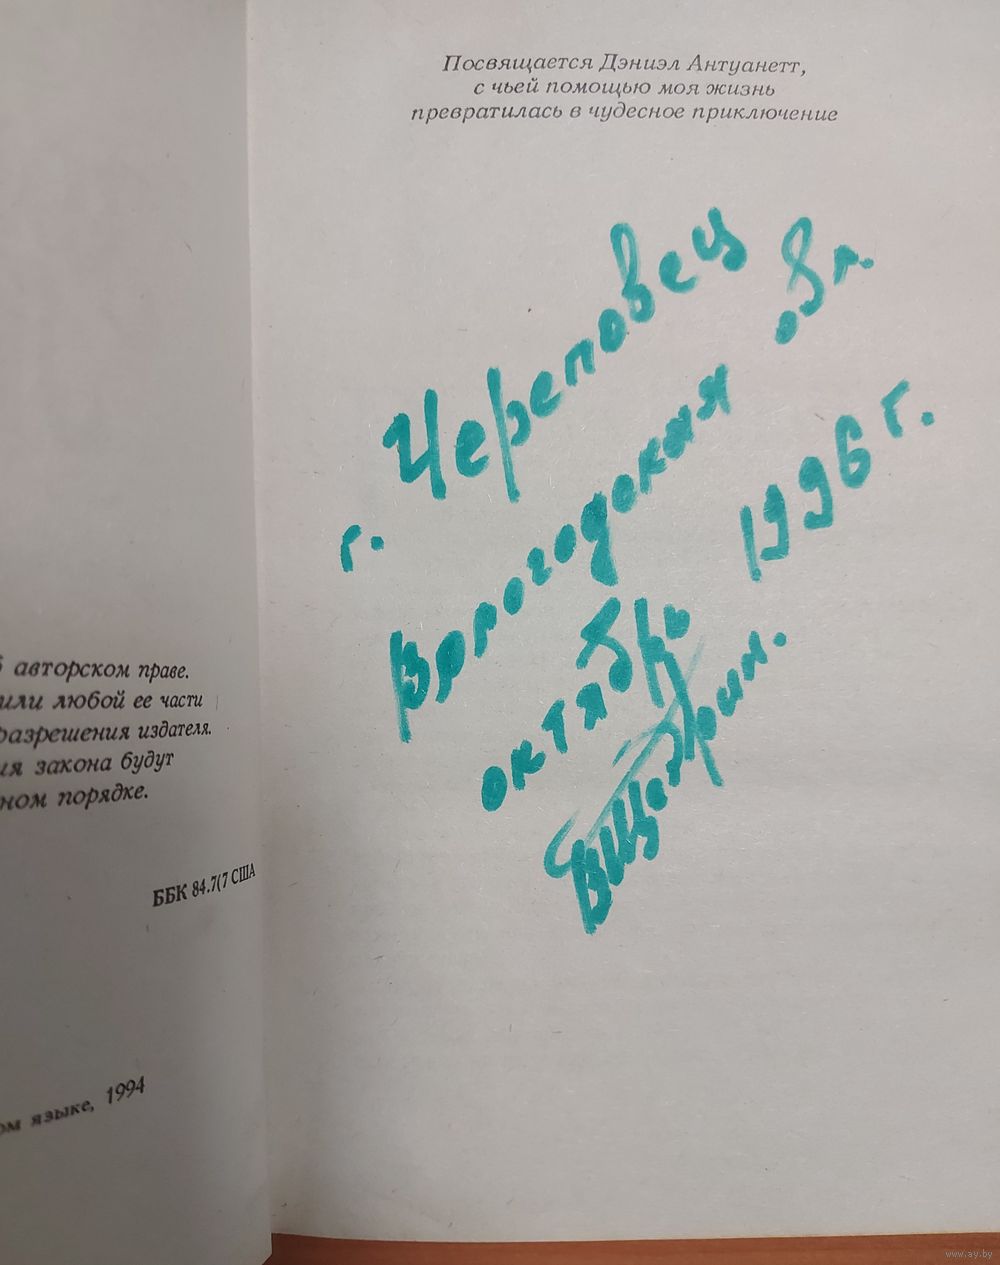 Посвящается Дэниэл Антуанетт,
с чьей помощью моя жизнь
превратилась в чудесное приключение
г. Череповец
Вологодская обл.
октябрь 1996 г.
ВЩербин.
б авторском праве.
или любой ее части
разрешения издателя.
ия закона будут
ном порядке.
ББК 84.7(7 США
ом языке, 1994
www.ay.by